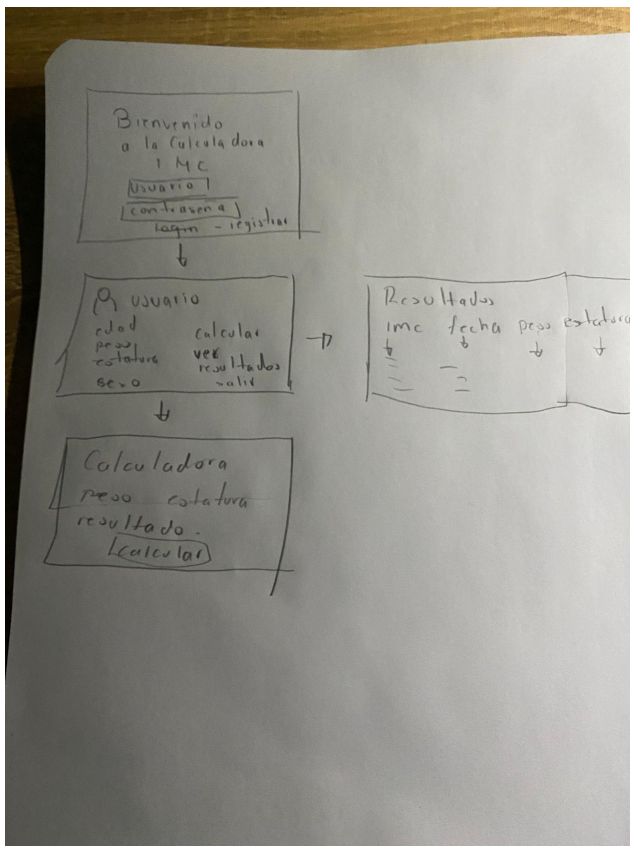 Bienvenido
a la Calculadora
IMC
Usuario
contraseña
login - registrar
usuario
edad
peso
estatura
sexo
calcular
ver
resultados
salir
Resultados
imc fecha peso estatura
Calculadora
peso estatura
resultado.
calcular